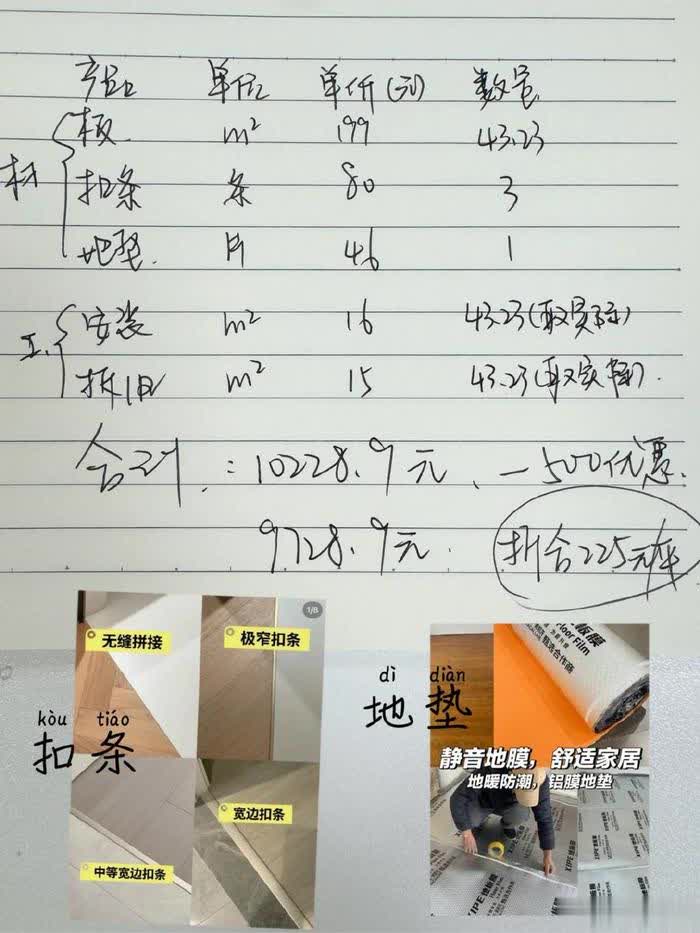 产品 单位 单价(元) 数量
材
板 m² 199 43.23
扣条 条 80 3
地垫 片 46 1
工
安装 m² 16 43.23(取实际)
拆旧 m² 15 43.23(取实际)
合计:10228.9元,-500优惠
9728.9元.
折合225元/平
1/8
无缝拼接
极窄扣条
kòu tiáo
扣条
宽边扣条
中等宽边扣条
dì diàn
地垫
板膜
Floor Film
甄选合作商
静音地膜,舒适家居
地暖防潮,铝膜地垫
XIPE地板膜